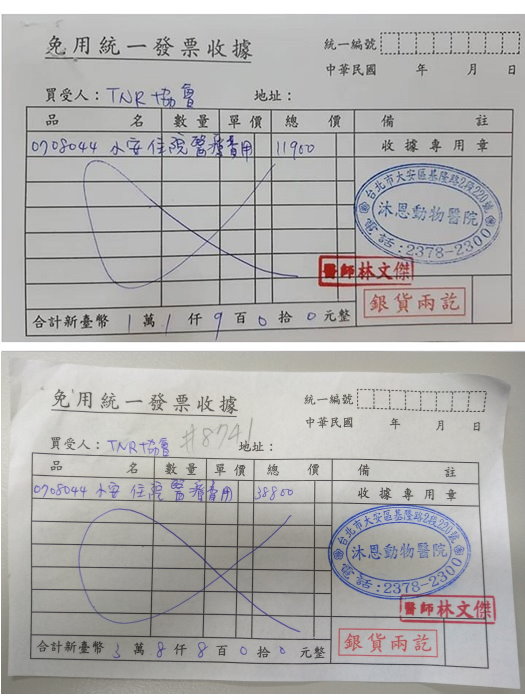 免用統一發票收據
統一編號
中華民國 年 月 日
買受人：TNR協會 地址：
品名 數量 單價 總價 備註
0708044 水安住院醫療費用 11900 收據專用章
台北市大安區基隆路2段220號
沐恩動物醫院
電話：2378-2300
醫師林文傑
銀貨兩訖
合計新臺幣 1 萬 1 仟 9 百 0 拾 0 元整
免用統一發票收據
統一編號
中華民國 年 月 日
#8741
買受人：TNR協會 地址：
品名 數量 單價 總價 備註
0708044 水安住院醫療費用 38800 收據專用章
台北市大安區基隆路2段220號
沐恩動物醫院
電話：2378-2300
醫師林文傑
銀貨兩訖
合計新臺幣 3 萬 8 仟 8 百 0 拾 0 元整